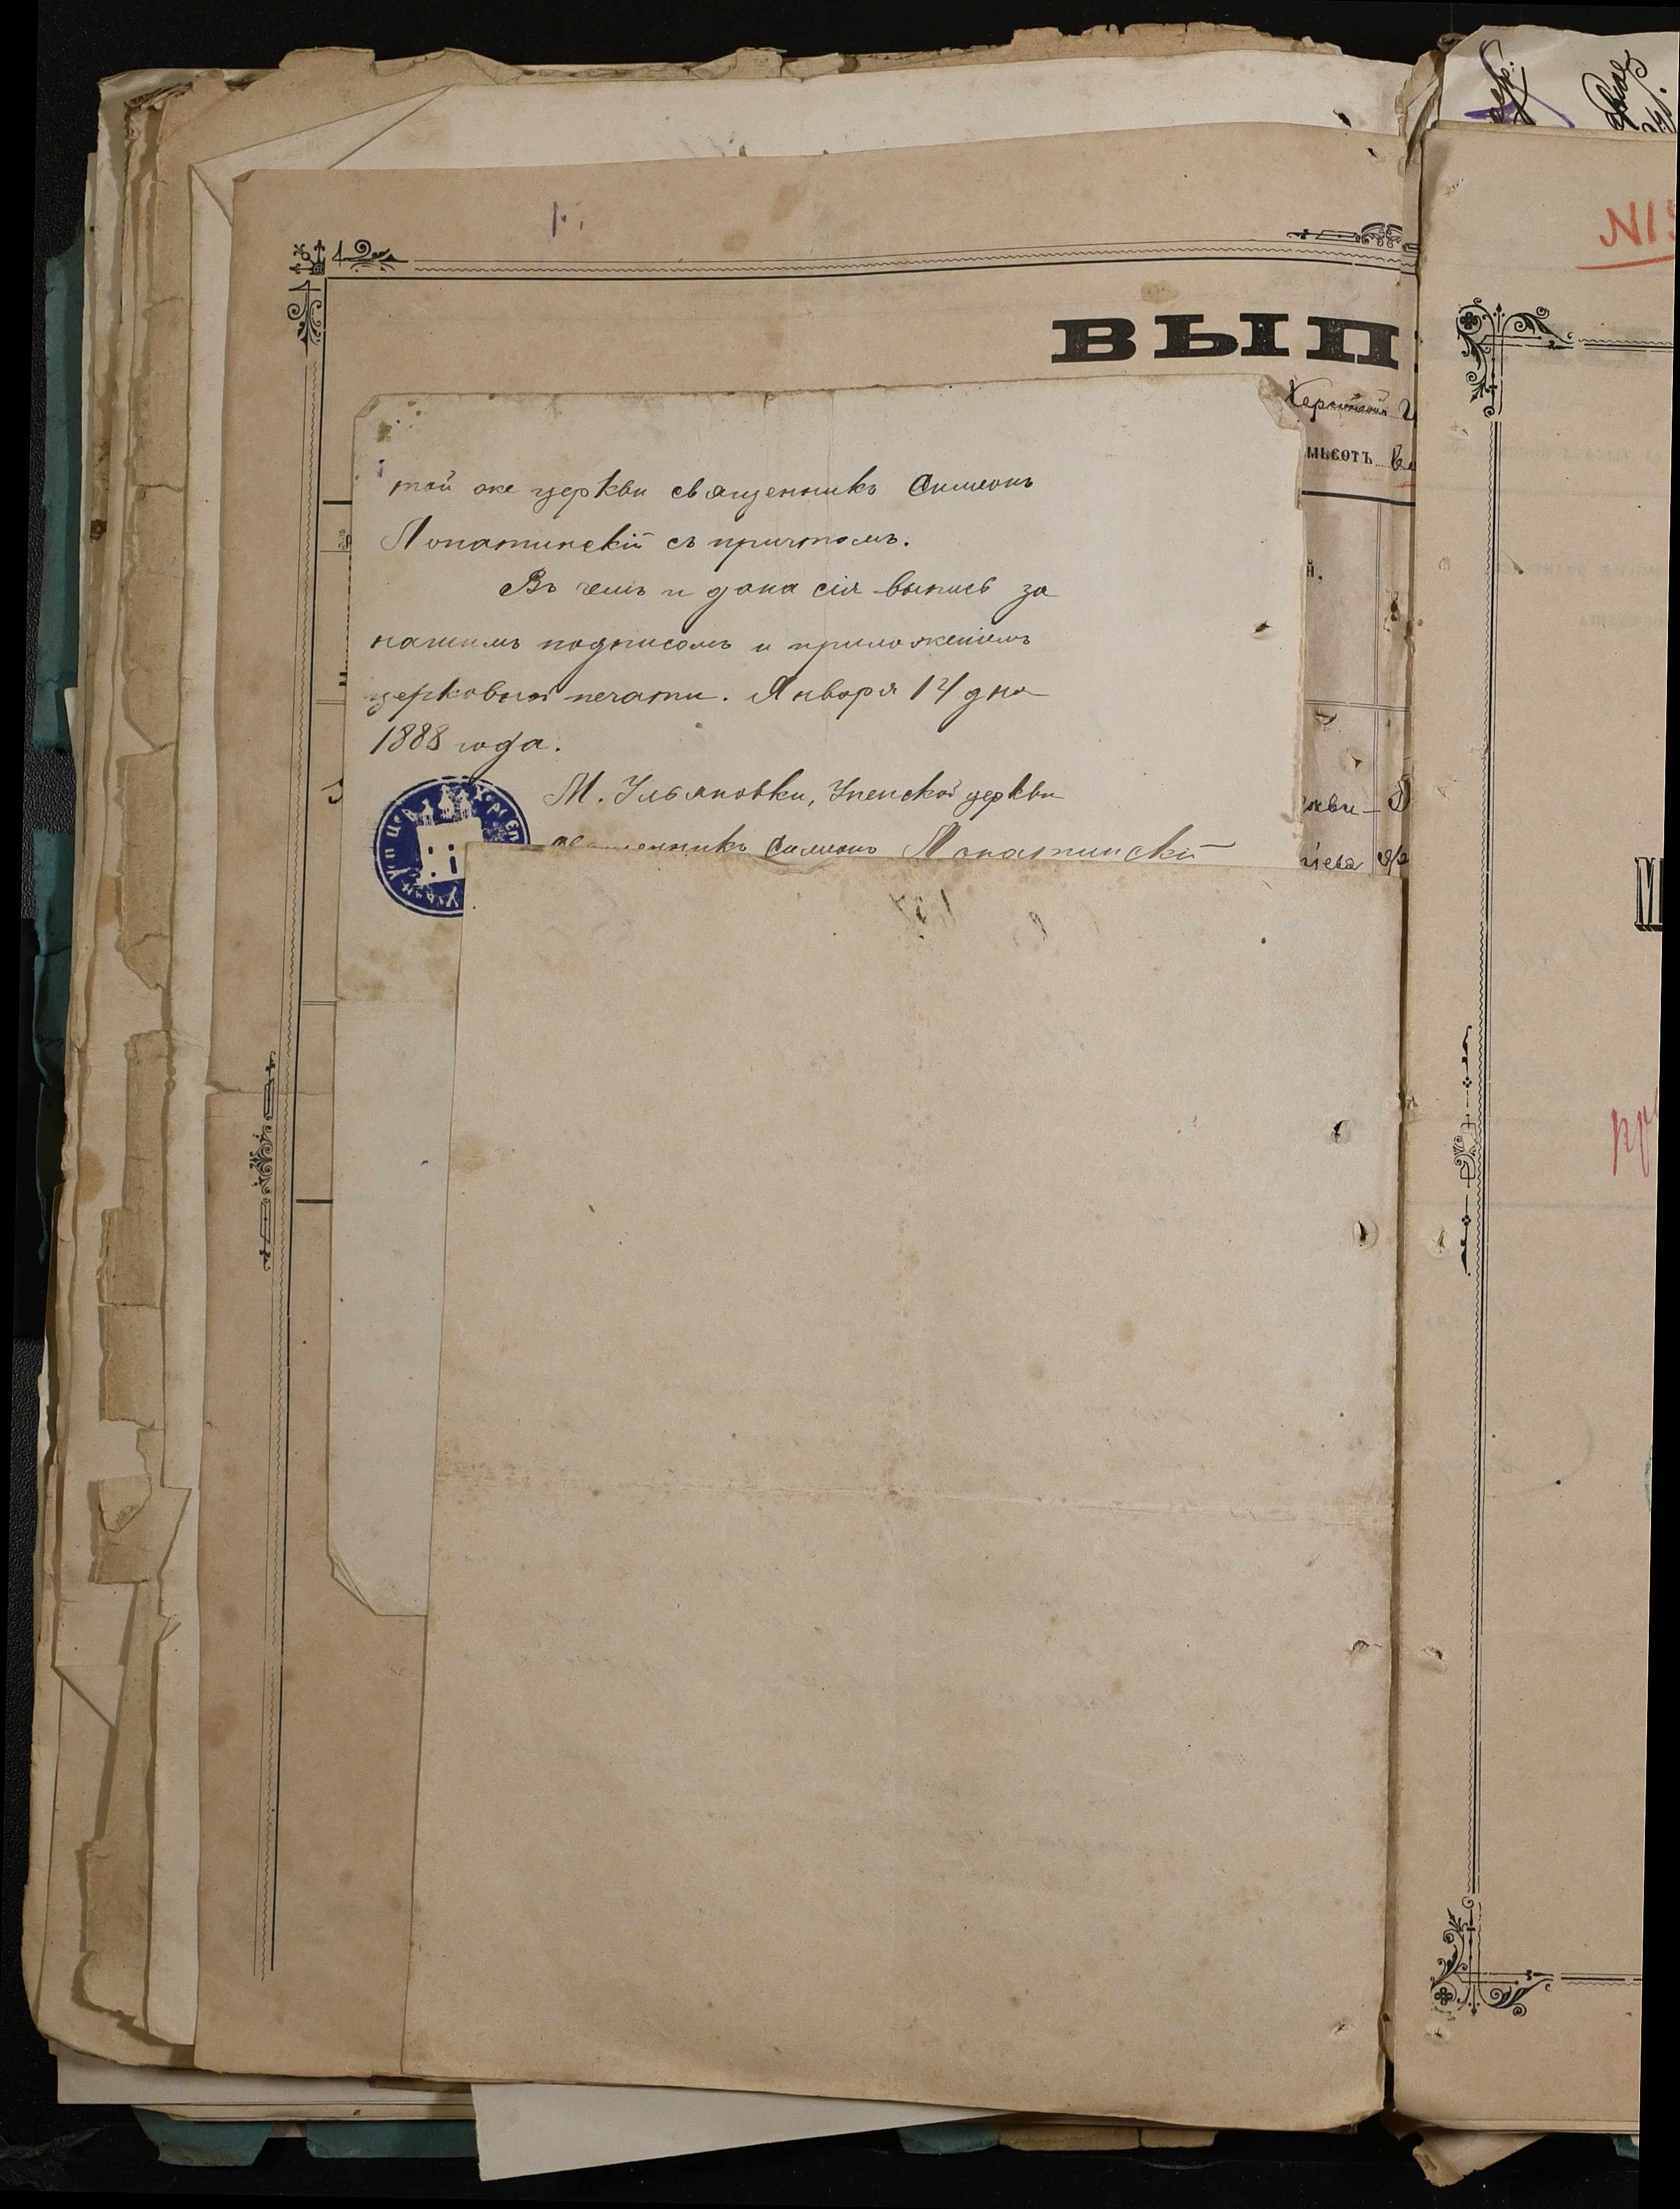 ВЫП
той же церкви священникъ Симеонъ
Лопатинскій съ причтомъ.
Въ чемъ и дана сія выпись за
нашимъ подписомъ и приложеніемъ
церковной печати. Января 14 дня
1888 года.
М. Ульяновки, Успенской церкви
священникъ Симеонъ Лопатинскій
мьсотъ
N1
М